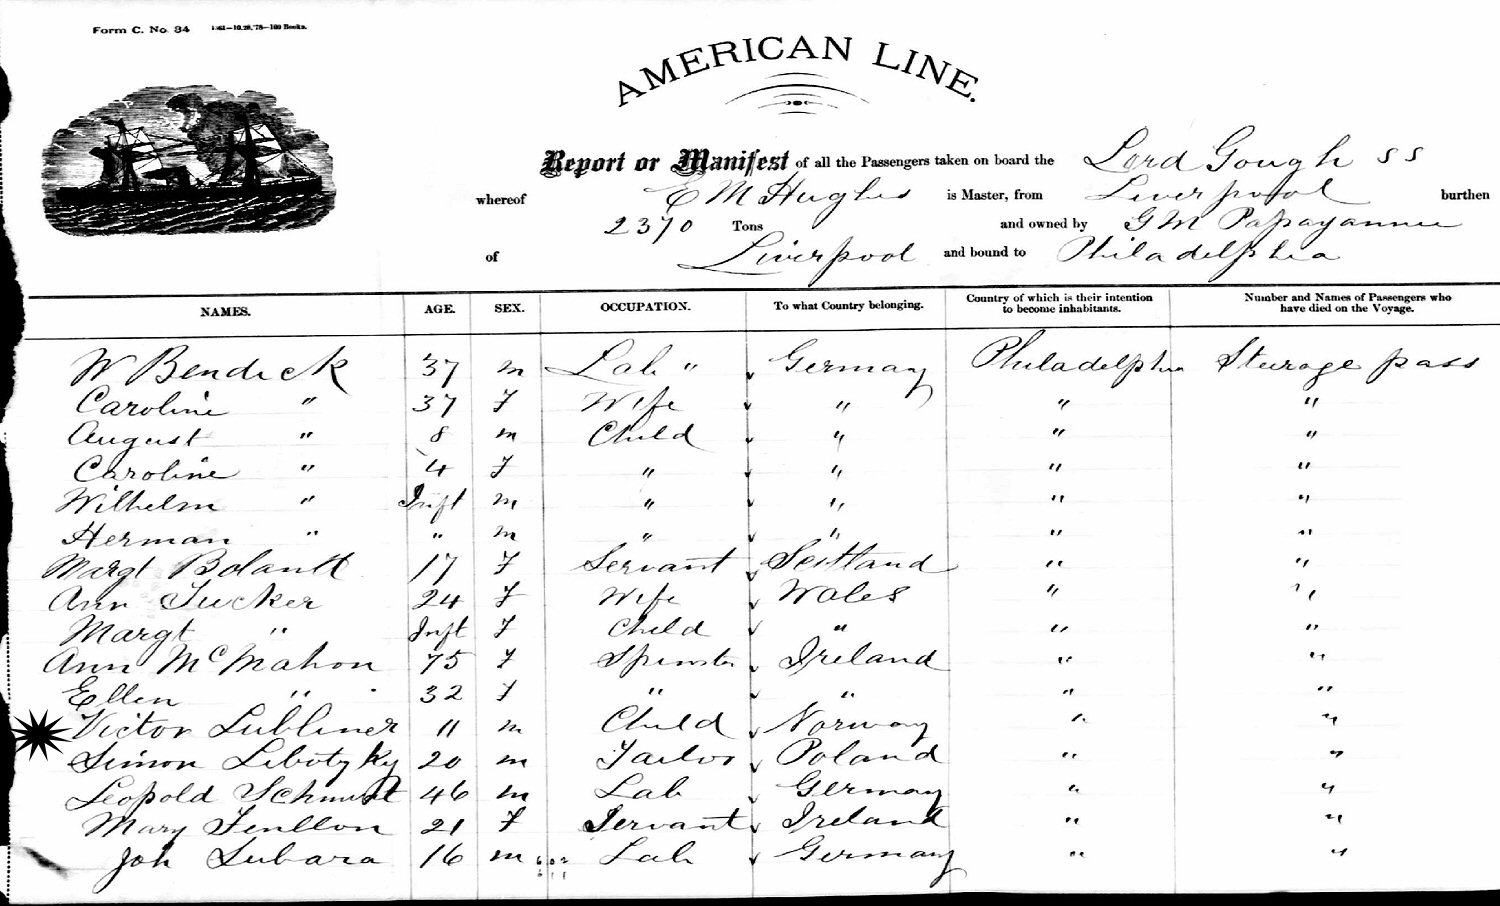 Form C. No. 34 1361—10.28,'78—100 Books.
AMERICAN LINE.
Report or Manifest of all the Passengers taken on board the Lord Gough SS
whereof E M Hughes is Master, from Liverpool burthen
2370 Tons and owned by G M Papayannee
of Liverpool and bound to Philadelphia
NAMES. AGE. SEX. OCCUPATION. To what Country belonging. Country of which is their intention to become inhabitants. Number and Names of Passengers who have died on the Voyage.
W Bendick 37 m Lab " Germany Philadelphia Sturage pass
Caroline " 37 F Wife " " "
August " 8 m Child " " "
Caroline " 4 F " " " "
Wilhelm " Inft m " " " "
Herman " " m " " " "
Margt 17 F Servant Scotland " "
Ann Tucker 24 F Wife Wales " "
Margt " Inft F Child " " "
Ann McMahon 75 F Spinster Ireland " "
Ellen " 32 F " " " "
Victor Lubliner 11 m Child Norway " "
Simon Libotzky 20 m Tailor Poland " "
Leopold Schmidt 46 m Lab Germany " "
Mary Fenllon 21 F Servant Ireland " "
Joh Lubara 16 m Lab Germany " "